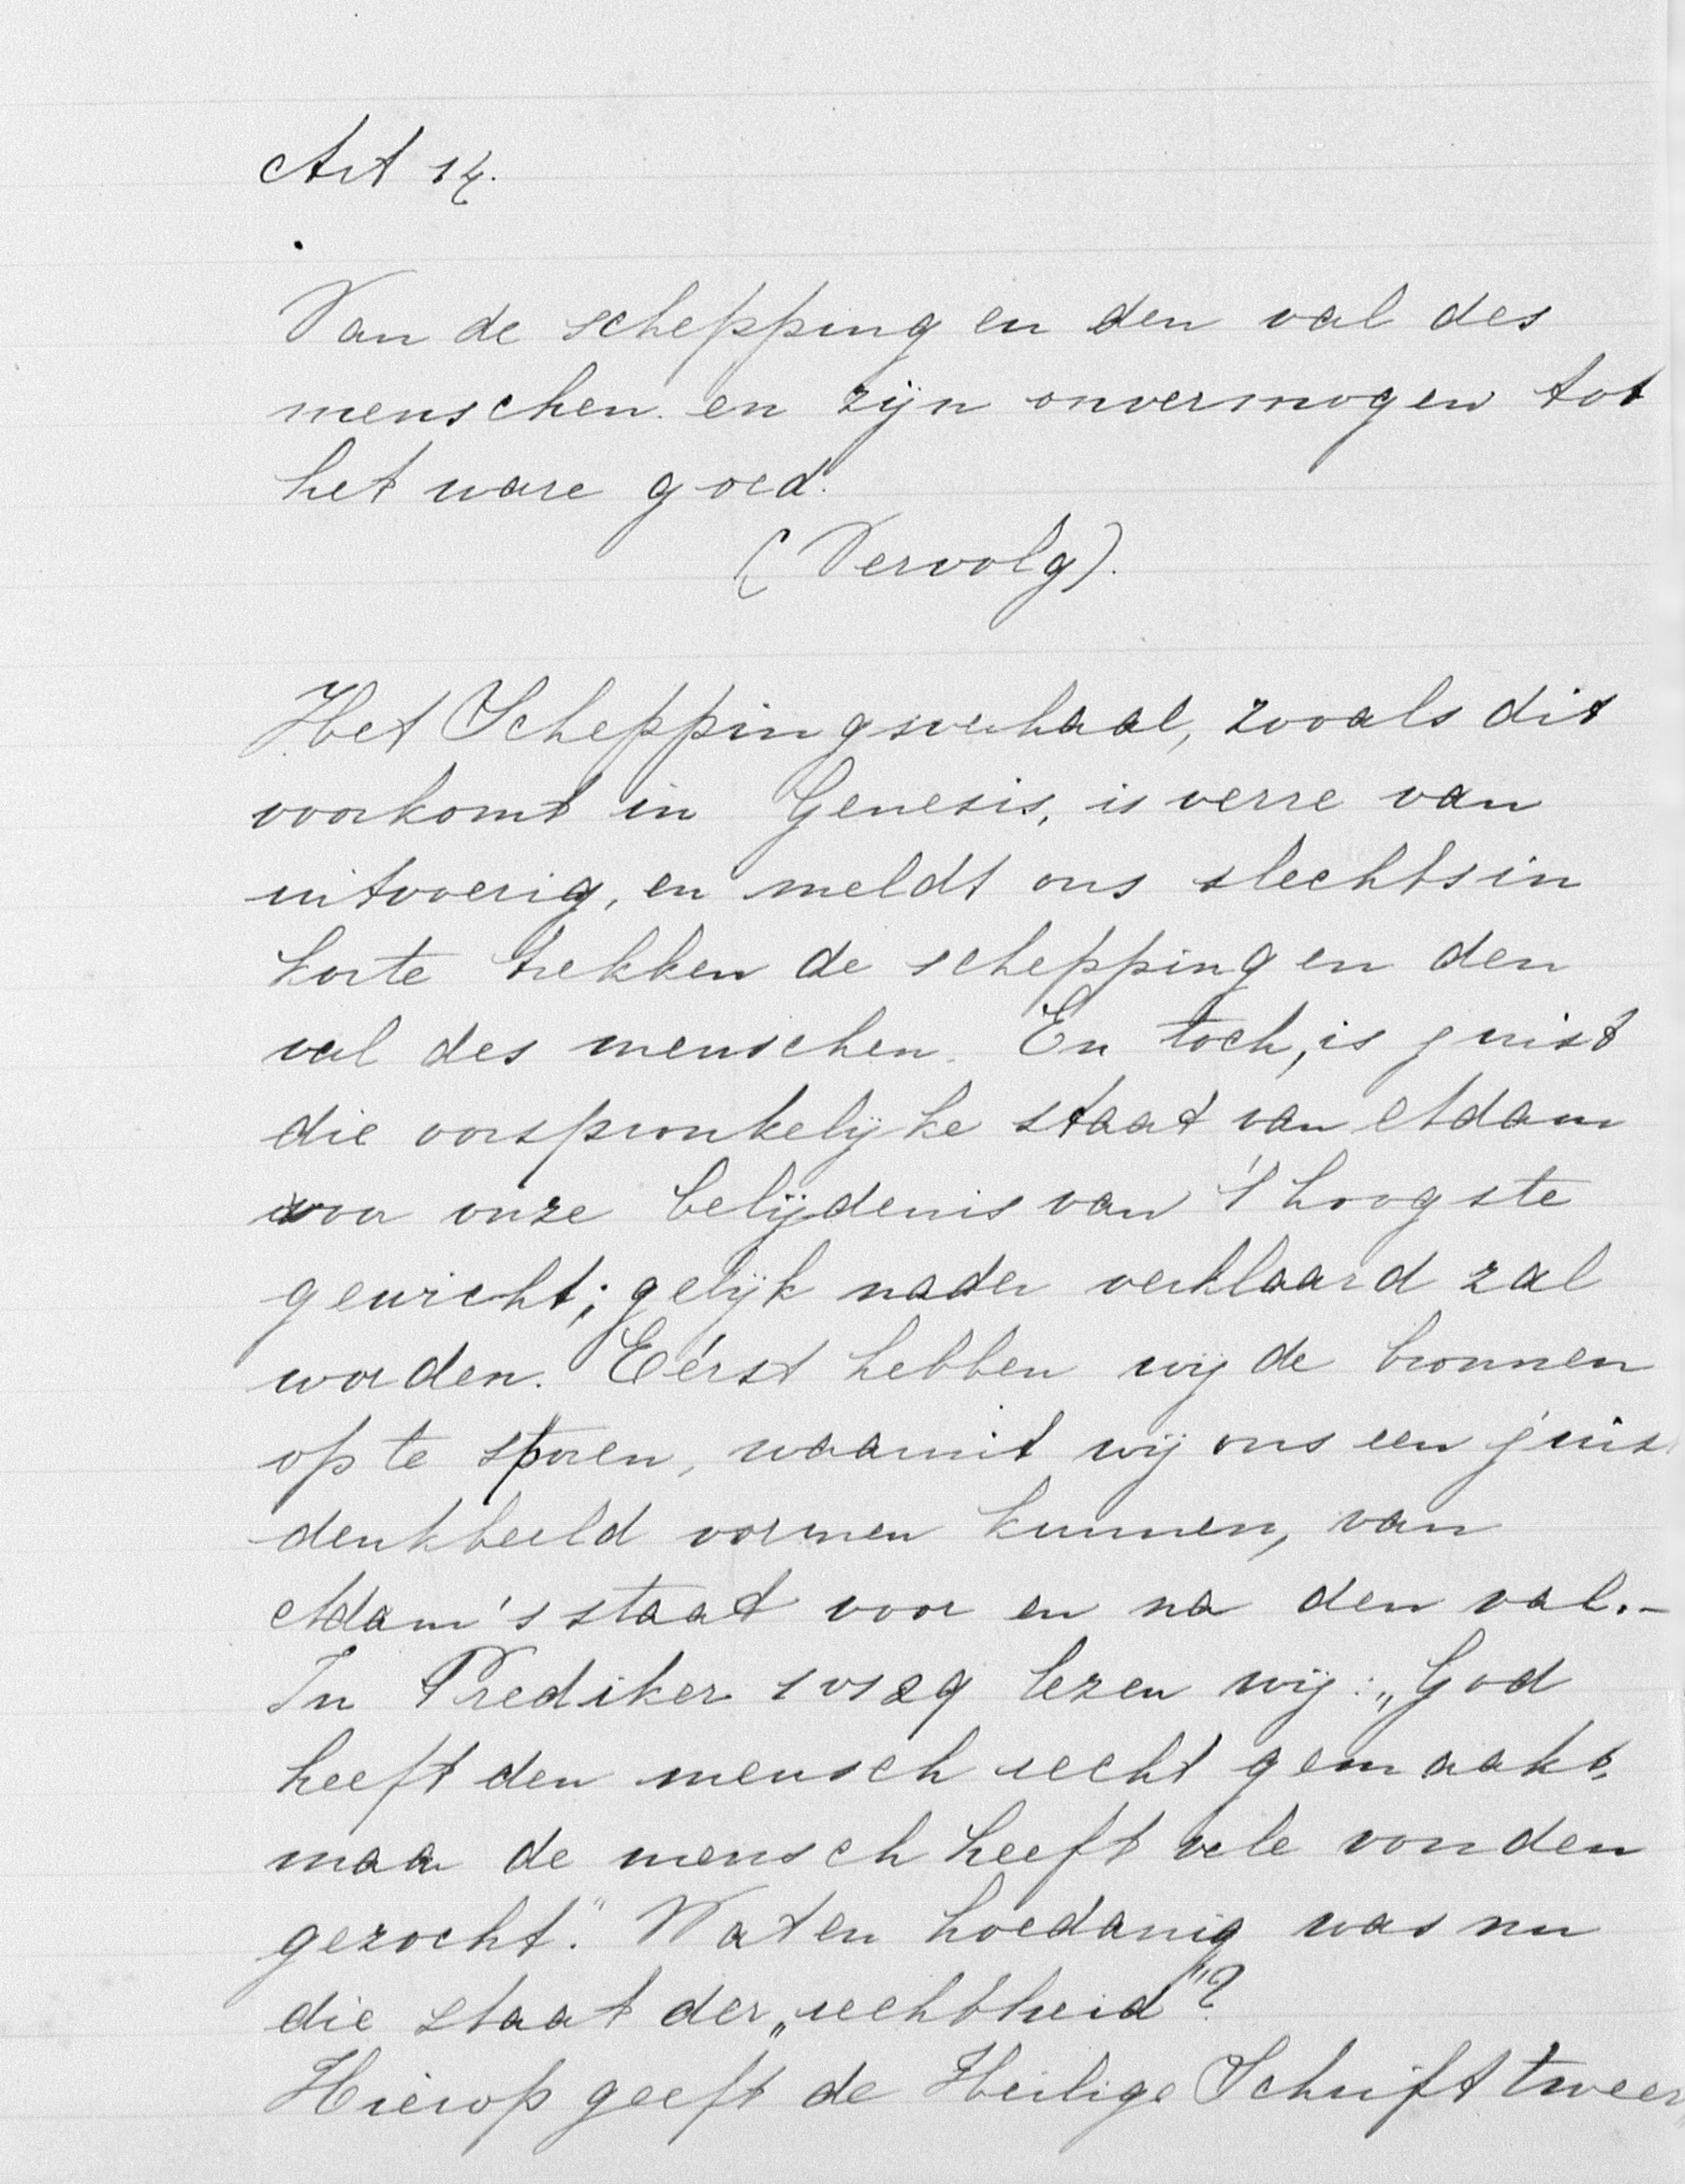 Art 14.
Van de schepping en den val des
menschen en zijn onvermogen tot
het ware goed.
(Vervolg).
Het Scheppingsverhaal, zooals dit
voorkomt in Genesis, is verre van
uitvoerig, en meldt ons slechts in
korte trekken de schepping en den
val des menschen. En toch, is juist
die oorspronkelijke staat van Adam
voor onze belijdenis van 't hoogste
gewicht; gelijk nader verklaard zal
worden. Eérst hebben wij de bronnen
op te sporen, waaruit wij ons een juist
denkbeeld vormen kunnen, van
Adam's staat voor en na den val.-
In Prediker vs 29 lezen wij: „God
heeft den mensch recht gemaakt,
maar de mensch heeft vele vonden
gezocht." Wat en hoedanig was nu
die staat der „rechtheid"?
Hierop geeft de Heilige Schrift